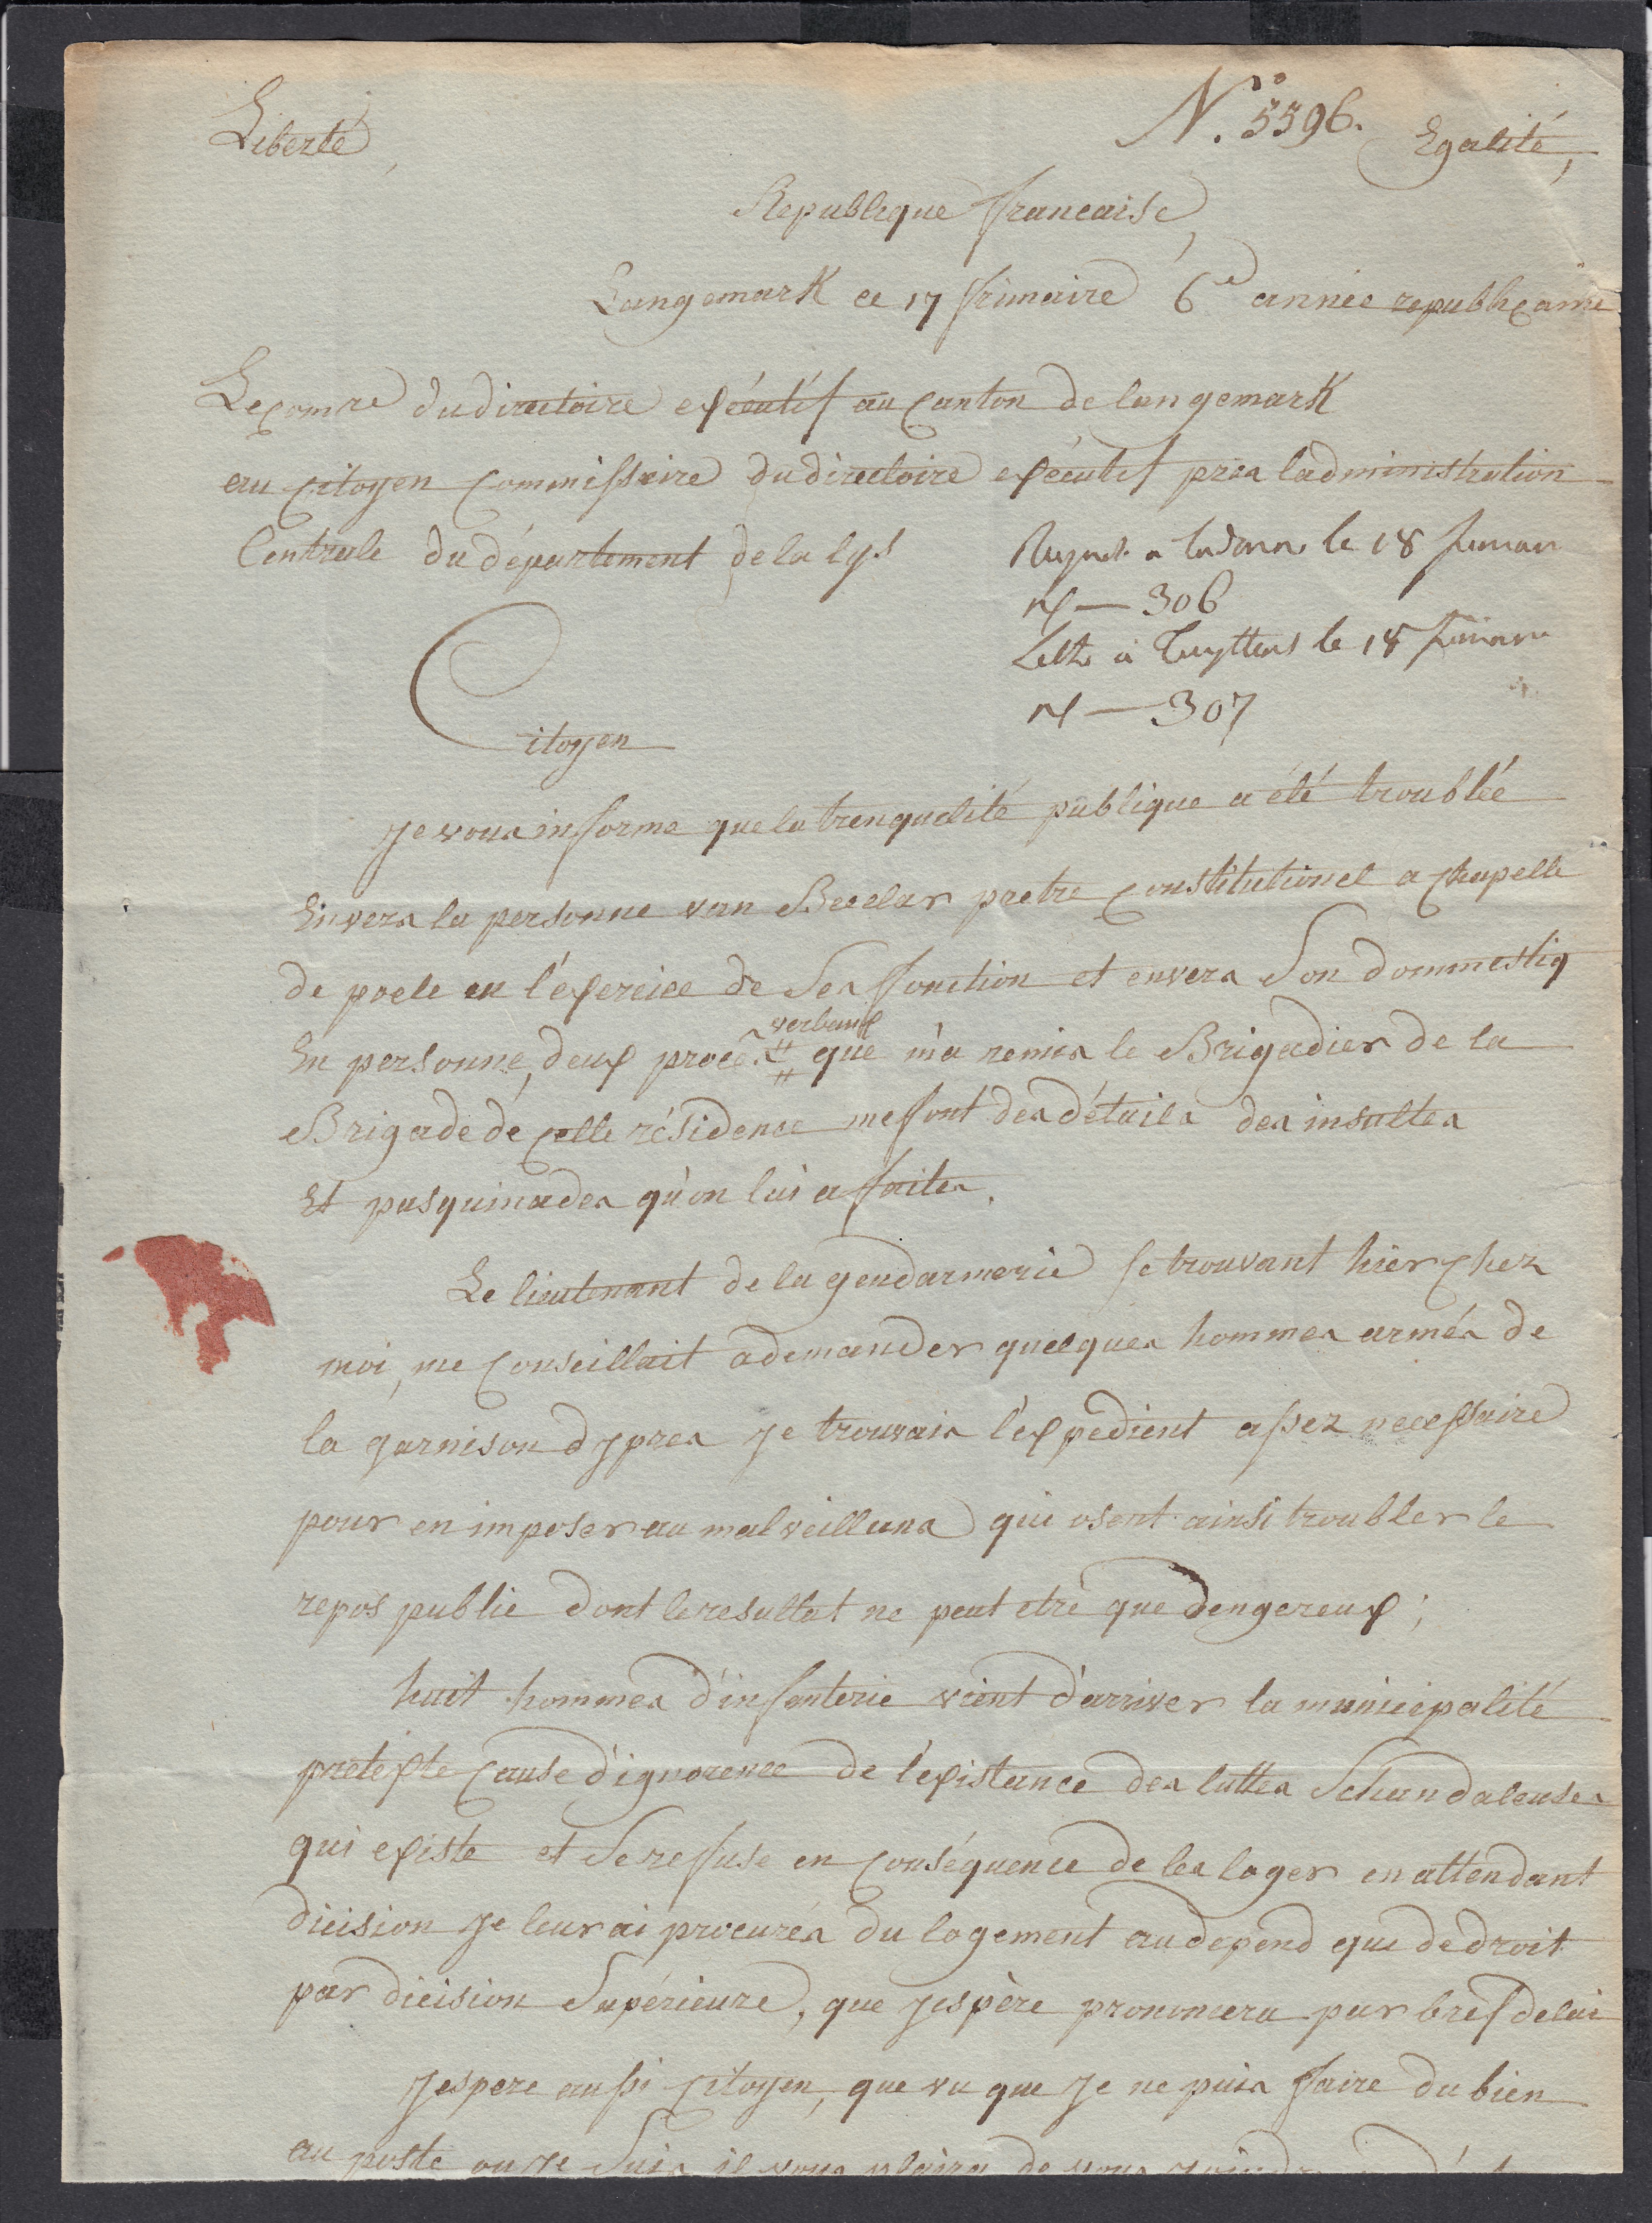 Liberté,
N.° 5596.
Egalité,
Republique francaise,
Langemark ce 17 frimaire 6e année republicaine
Le comre du directoire exécutif au canton de langemark
au citoyen commissaire du directoire exécutif près ladministration
Centrale du département de la lys
le 18 frimaire
N — 306
Lettre à Tuyttens le 18 frimaire
N — 307
Citoyen
Je vous informe que la trenqualité publique a été troublée
Envers la personne van Becelar pretre constitutionel a chapelle
de poele en l'exercice de Ses fonction et envers Son dommestiq
En personne, deux procès verbaux que m'a remis le Brigadier de la
Brigade de cette résidence me font des détails des insultes
Et pasquinades qu'on lui a faites.
Le lieutenant de la gendarmerie se trouvant hier chez
moi, me conseillait a demander quelques hommes armés de
la garnison dypres je trouvais l'expedient assez necessaire
pour en imposer au malveillans qui osent ainsi troubler le
repos public dont le resultat ne peut etre que dengereux;
huit hommes d'infenterie vient d'arriver la municipalité
pretexte cause d'ignorence de l'existance des luttes Schandaleuses
qui existe et Se refuse en conséquence de les loger en attendant
dicision je leur ai procurés du logement au depend que de droit
par dicision Supérieure, que jespère prononcera par bref delai
Jespere aussi citoyen, que vu que je ne puis faire du bien
au poste ou je Suis il vous plaira de vous